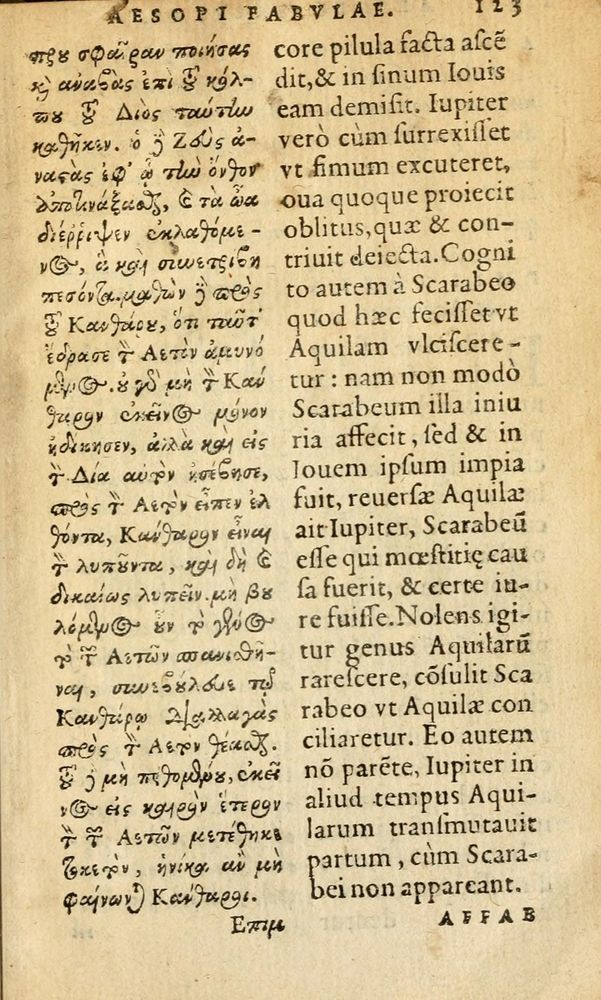 AESOPI FABVLAE. 123
που σφαῖραν ποιήσας
καὶ ἀναβὰς ἐπὶ τοῦ κόλ-
που τοῦ Διὸς ταύτην
καθῆκεν. ὁ δὲ Ζεὺς ἀ-
ναστὰς ἐφ' ᾧ τὴν ὄνθον
ἀποτινάξασθαι, καὶ τὰ ὠὰ
διέρριψεν ἐκλαθόμε-
νος, ἃ καὶ συνετρίβη
πεσόντα. μαθὼν δὲ πρὸς
τοῦ Κανθάρου, ὅτι ταῦτ'
ἔδρασε τὸν Αετὸν ἀμυνό
μενος. οὐ γὰρ δὴ τὸν Κάν
θαρον ἐκεῖνος μόνον
ἠδίκησεν, ἀλλὰ καὶ εἰς
τὸν Δία αὐτὸν ἠσέβησε,
πρὸς τὸν Αετὸν εἶπεν ἐλ
θόντα, Κάνθαρον εἶναι
τὸν λυποῦντα, καὶ δὴ καὶ
δικαίως λυπεῖν. μὴ βου
λόμενος οὖν τὸ γένος
τὸ τῶν Αετῶν σπανισθῆ-
ναι, συνεβούλευε τῷ
Κανθάρῳ διαλλαγὰς
πρὸς τὸν Αετὸν θέσθαι.
τοῦ δὲ μὴ πειθομένου, ἐκεῖ
νος εἰς καιρὸν ἕτερον
τὸν τῶν Αετῶν μετέθηκε
τοκετὸν, ἡνίκα ἂν μὴ
φαίνωνται Κάνθαροι.
Επιμ
core pilula facta ascē
dit, & in sinum Iouis
eam demisit. Iupiter
verò cùm surrexisset
vt fimum excuteret,
oua quoque proiecit
oblitus, quæ & con-
triuit deiecta. Cogni
to autem à Scarabeo
quod hæc fecisset vt
Aquilam vlciscere-
tur: nam non modò
Scarabeum illa iniu
ria affecit, sed & in
Iouem ipsum impia
fuit, reuersæ Aquilæ
ait Iupiter, Scarabeū
esse qui mœstitię cau
sa fuerit, & certe iu-
re fuisse. Nolens igi-
tur genus Aquilarū
rarescere, cōsulit Sca
rabeo vt Aquilæ con
ciliaretur. Eo autem
nō parēte, Iupiter in
aliud tempus Aqui-
larum transmutauit
partum, cùm Scara-
bei non appareant.
AFFAB